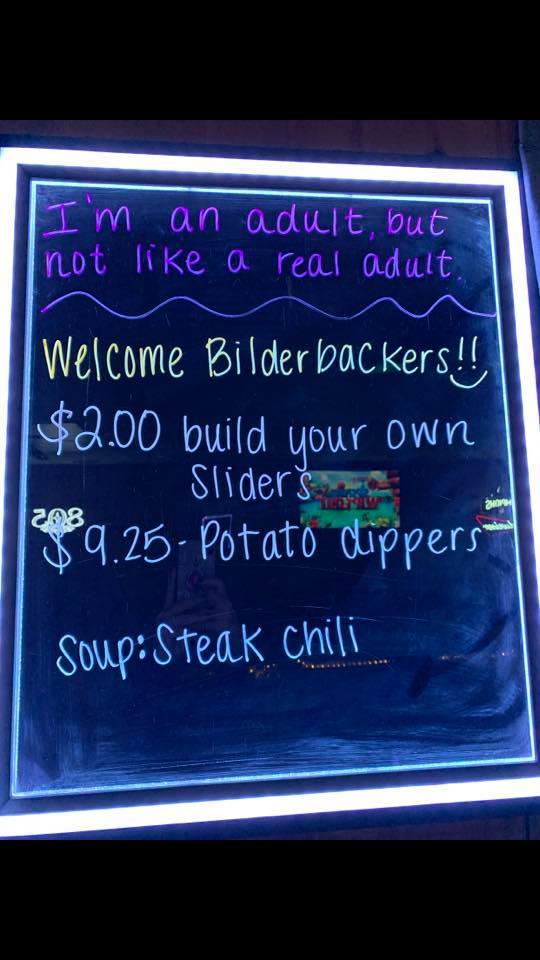 I'm an adult, but
not like a real adult.
Welcome Bilderbackers!!
$2.00 build your own
Sliders
$9.25 - Potato dippers
Soup: Steak Chili